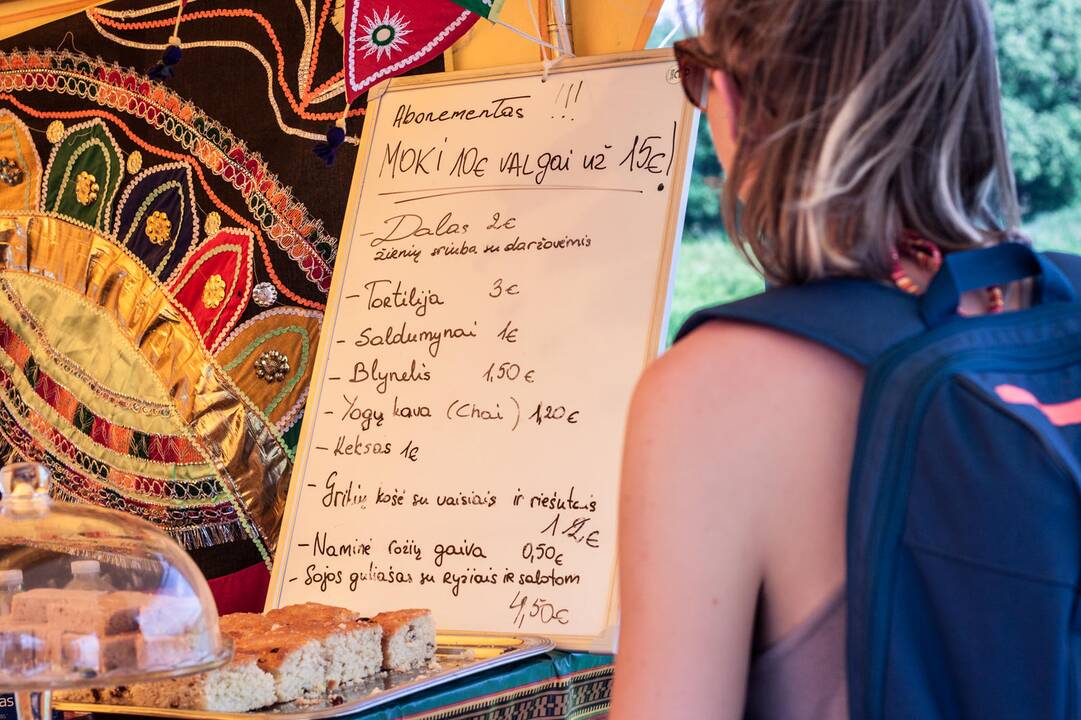 Abonementas !!!
MOKI 10€ VALgai už 15€!
- Dalas 2€
žirnių sriuba su daržovėmis
- Tortilija 3€
- Saldumynai 1€
- Blynelis 1,50€
- Yogų kava (Chai) 1,20€
- Keksas 1€
- Grikių košė su vaisiais ir riešutais
1 €
- Naminė rožių gaiva 0,50€
- Sojos guliašas su Ryžiais ir salotom
4,50€